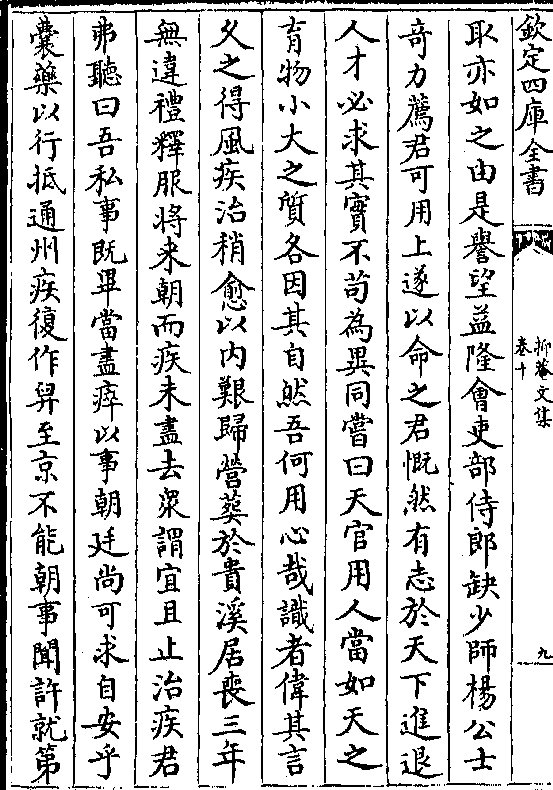 欽定四庫全書
抑菴文集
卷十
九
取亦如之由是譽望益隆會吏部侍郎缺少師楊公士
奇力薦君可用上遂以命之君慨然有志於天下進退
人才必求其實不苟為異同嘗曰天官用人當如天之
育物小大之質各因其自然吾何用心哉識者偉其言
久之得風疾治稍愈以内艱歸營葬於貴溪居喪三年
無違禮釋服將来朝而疾未盡去衆謂宜且止治疾君
弗聽曰吾私事既畢當盡瘁以事朝廷尚可求自安乎
囊藥以行抵通州疾復作舁至京不能朝事聞許就第